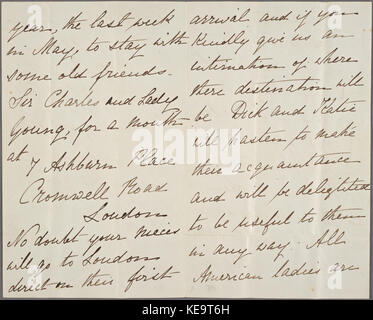 year, the last week
in May, to stay with
some old friends.
Sir Charles and Lady
Young, for a month
at 7 Ashburn Place
Cromwell Road
London
No doubt your nieces
will go to London
direct on their first
arrival and if you
Kindly give us an
intimation of where
there destination will
be Dick and Katie
will hasten to make
their acquaintance
and will be delegited
to be useful to them
in any way. All
American ladies are
alamy
Image ID: KE9T6H
www.alamy.com